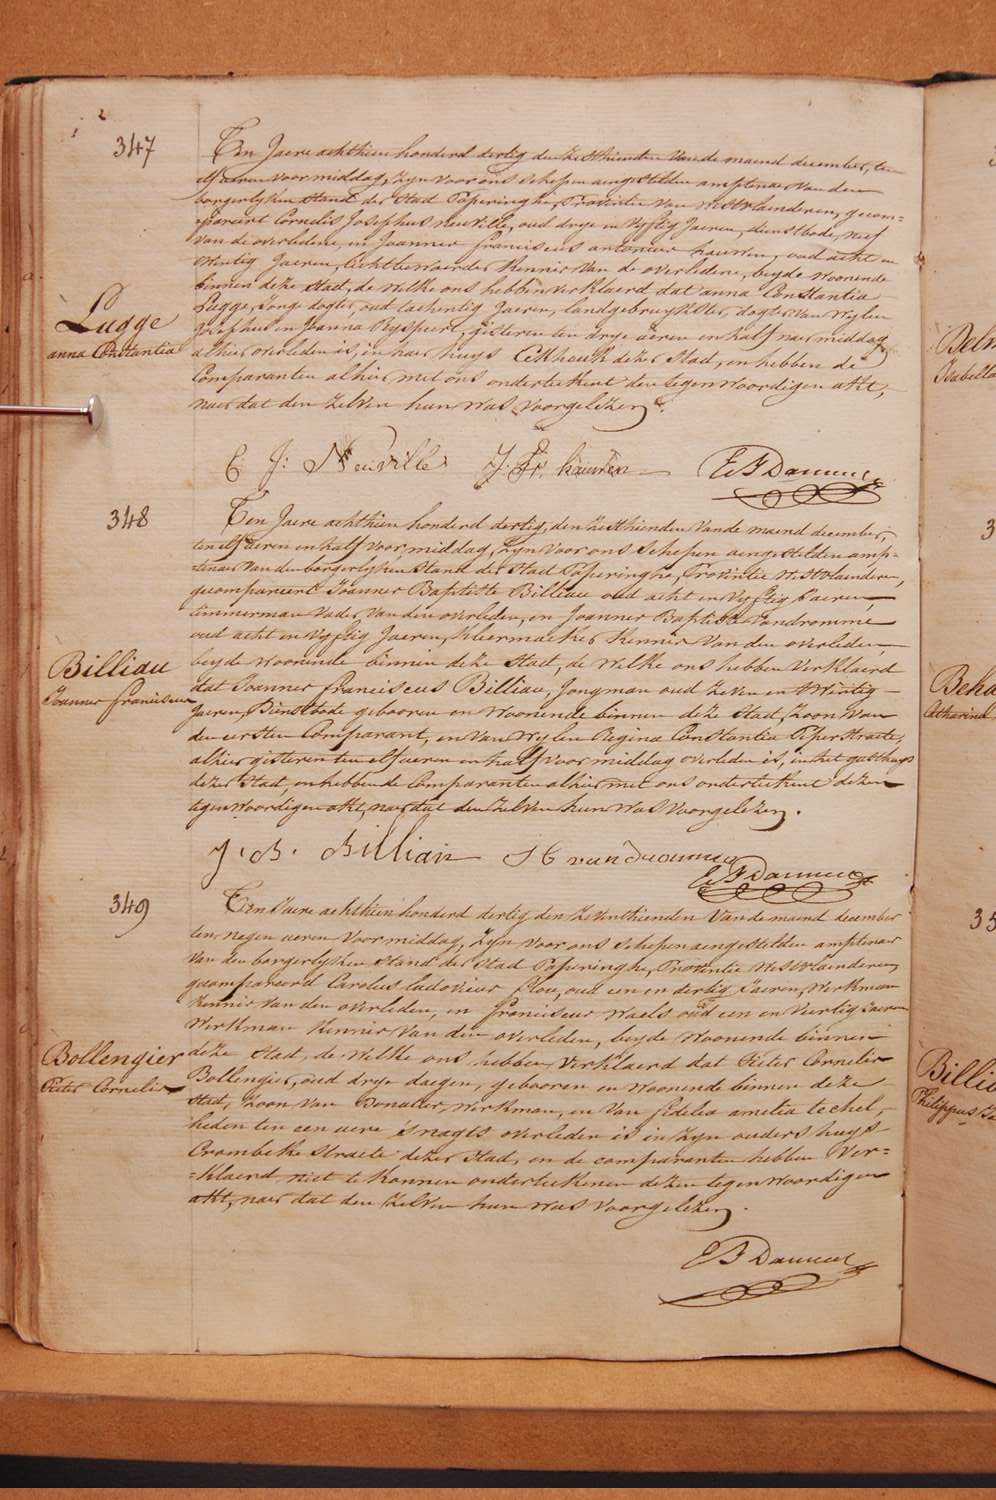 347
Ten Jaere achthien honderd dertig den zesthienden van de maend december, ten
elf ueren voormiddag, zyn voor ons schepen aengestelden amptenaer van den
borgerlyken stand der stad Poperinghe, Provintie van westvlaenderen, gecom=
=pareert Cornelis Josephus neuville, oud drye en vyftig Jaeren, dienstbode, neef
van de overledene, en Joannes franciscus antonius hauwen, oud acht en
Jaeren, kennis van de overledene, beyde woonende
binnen deze stad, de welke ons hebben verklaerd, dat anna Constantia
Lugge, Jonge dogter, oud tachentig Jaeren, landgebruykster, dogter van wylen
Josephus en Joanna Ryspeert, gisteren ten drye ueren en half naer middag
alhier overleden is, in haer huys Eekhoek dezer stad, en hebben de
Comparanten alhier met ons onderteekent den tegenwoordigen akt,
naer dat den zelven hun was voorgelezen.
Lugge
anna Constantia
C J: Neuville J: Fr. hauwen E F Dammen
348
Ten Jaere achthien honderd dertig, den zesthienden van de maend december,
ten elf ueren en half voormiddag, zyn voor ons schepen aengestelden amp=
=tenaer van den borgerlyken stand der stad Poperinghe, Provintie westvlaenderen,
gecompareert Joannes Baptiste Billiau oud acht en vyftig Jaeren,
timmerman vader van den overleden, en Joannes Baptiste Vandromme
oud acht en vyftig Jaeren, kleermaeker kennis van den overleden,
beyde woonende binnen deze stad, de welke ons hebben verklaerd
dat Joannes franciscus Billiau, Jongman oud zeven en twintig
Jaeren, Dienstbode gebooren en woonende binnen deze stad, zoon van
den eersten Comparant, en van wylen Regina Constantia Peperstraete,
alhier gisteren ten elf ueren en half voormiddag overleden is, in het gasthuys
dezer stad, en hebben de Comparanten alhier met ons onderteekent dezen
tegenwoordigen akt, naer dat den zelven hun was voorgelezen.
Billiau
Joannes franciscus
J. B. Billiau vandromme
E F Dammen
349
Ten Jaere achthien honderd dertig den zeventhienden van de maend december
ten negen ueren voormiddag, zyn voor ons schepen aengestelden amptenaer
van den borgerlyken stand der stad Poperinghe, Provintie westvlaenderen,
gecompareerd Carolus ludovicus Plou, oud een en dertig Jaeren, werkman
kennis van den overleden, en franciscus waels oud een en veertig Jaeren
werkman kennis van den overleden, beyde woonende binnen
deze stad, de welke ons hebben verklaerd dat Pieter Cornelis
Bollengier, oud drye daegen, gebooren en woonende binnen deze
stad, zoon van Donatus, werkman, en van fidelia amelia techel,
heden ten een uere 's nagts overleden is in zyn ouders huys
Crombeke straete dezer stad, en de comparanten hebben ver=
=klaerd niet te konnen onderteekenen dezen tegenwoordigen
akt, naer dat den zelven hun was voorgelezen.
Bollengier
Pieter Cornelis
E F Dammen
Isabella
Beha
Catharina
35
Billia
Philippus